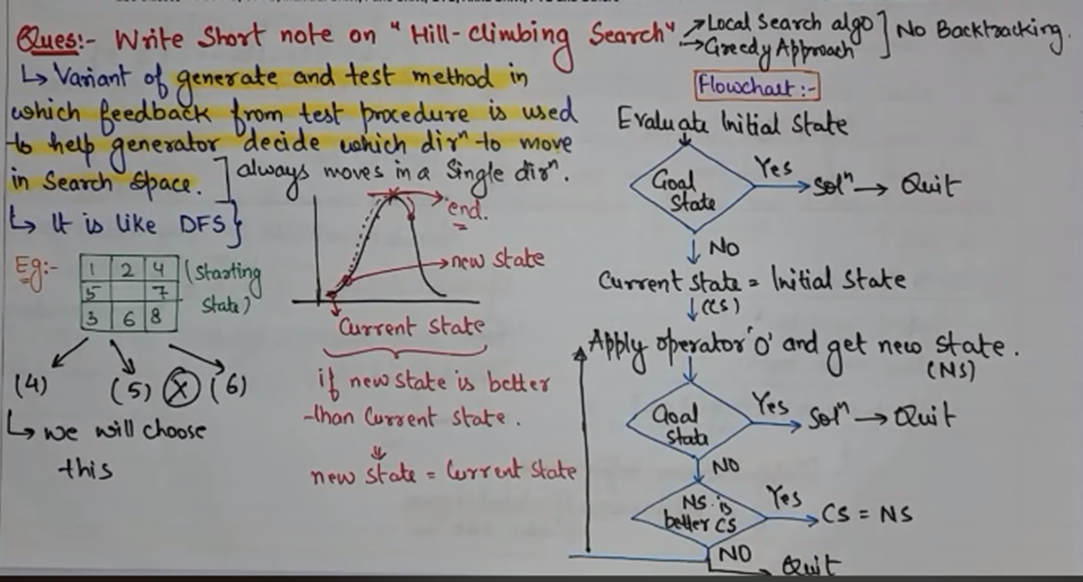 Ques:- Write Short note on "Hill-Climbing Search" → Local Search algo
→ Greedy Approach
] No Backtracking.
↳ Variant of generate and test method in
which feedback from test procedure is used
to help generator decide which dirⁿ to move
in Search Space. ] always moves in a Single dirⁿ.
↳ It is like DFS}
Eg:-
1 2 4
5 7
3 6 8
(Starting
State)
(4) (5) X (6)
↳ we will choose
this
end.
new state
Current State
if new state is better
than Current state.
new state = Current State
Flowchart :-
Evaluate Initial State
Goal
State
Yes → Solⁿ → Quit
↓ NO
Current State = Initial State
↓ (CS)
Apply operator 'O' and get new state.
(NS)
Goal
State
Yes → Solⁿ → Quit
↓ NO
NS is
better CS
Yes → CS = NS
NO
Quit